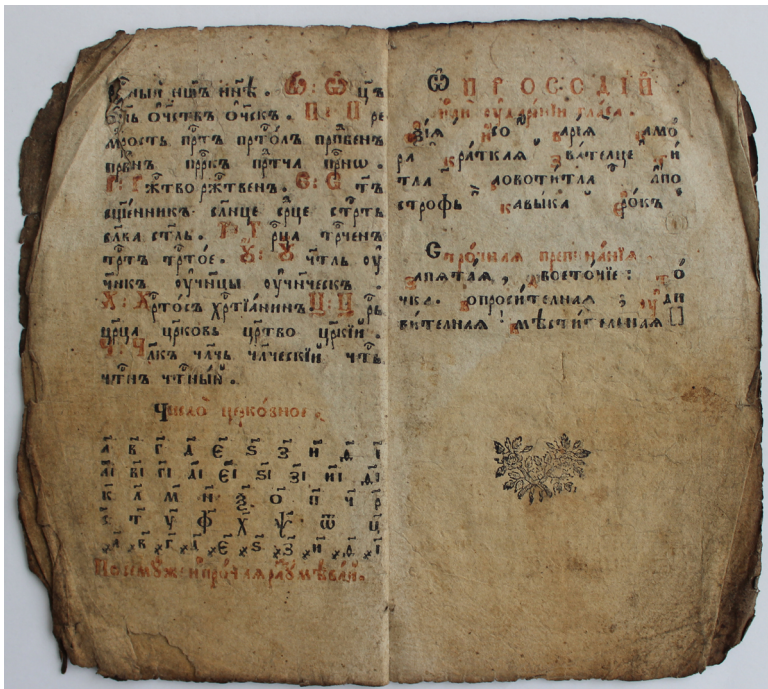 ный нн҃ъ нн҃ѣ . Ѿ : Ѿ ц҃ъ
оч҃ствъ оч҃ск . П : П ре
мⷣрость прⷪ҇тъ прⷭ҇то́лъ прпⷣбенъ
првⷣнъ прⷪ҇ркъ при҇тча прⷭ҇нѡ .
Р : Р жⷭ҇тво ржⷭ҇твенъ . С : С т҃ъ
сщ҃е́нникъ сл҃нце ср҃це стрⷭ҇ть
вⷧ҇ка ст҃ль . Т : Т рⷪ҇ца трⷪ҇ченъ
трⷭ҇тъ трⷭ҇то́е . Ꙋ : Ꙋ чт҃ль оу҆
чн҃къ оу҆чн҃цы оу҆чн҃ческъ .
Х : Х рⷭ҇то́съ хрⷭ҇тїа́нинъ Ц : Ц р҃ь
цр҃ца цр҃ковь црⷭ҇тво цр҃кїй .
Ч : Ч л҃къ чл҃чь чл҃ческїй чтⷭ҇ь
чтⷭ҇нъ чтⷭ҇ны́й .
Число̀ церко́вное .
а҃ в҃ г҃ д҃ є҃ ѕ҃ з҃ и҃ ѳ҃ і҃
а҃і в҃і г҃і д҃і є҃і ѕ҃і з҃і и҃і ѳ҃і
к҃ л҃ м҃ н҃ ѯ҃ о҃ п҃ ч҃ р҃
с҃ т҃ у҃ ф҃ х҃ ѱ҃ ѿ҃ ц҃
҂а҃ ҂в҃ ҂г҃ ҂д҃ ҂є҃ ҂ѕ҃ ҂з҃ ҂и҃ ҂ѳ҃ ҂і҃
По семꙋ́же и҆ про́чая раꙋмѣва́й .
Ѽ ПРОСѠДІИ
и҆лѝ оу҆даре́нїи гла́са .
Ѻ҆ѯі́я И҆́со Ва́рїя Камо́
ра Кра́ткая Зва́телце Ти́
тла Словоти́тла А҆по
стро́фь Кавы́ка Е҆ро́къ
Стро́чная препина́нїя
Запята́я , двоето́чїе : То́
чка . Вопроси́телная ; оу҆ди
ви́телная ! вмѣсти́телная []